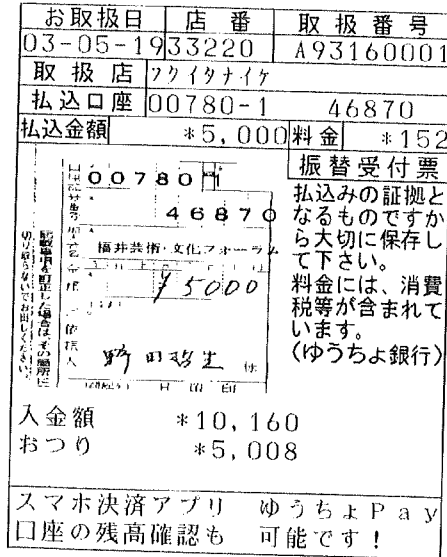 お取扱日 店番 取扱番号
03-05-19 33220 A93160001
取扱店 フクイタナイケ
払込口座 00780-1 46870
払込金額 *5,000 料金 *152
振替受付票
払込みの証拠と
なるものですか
ら大切に保存し
て下さい。
料金には、消費
税等が含まれて
います。
(ゆうちょ銀行)
00780 1
46870
福井芸術・文化フォーラム
¥5000
依頼人
様
記載事項を訂正した場合は、その箇所に
切り取らないでお出しください。
入金額 *10,160
おつり *5,008
スマホ決済アプリ ゆうちょPay
口座の残高確認も 可能です!